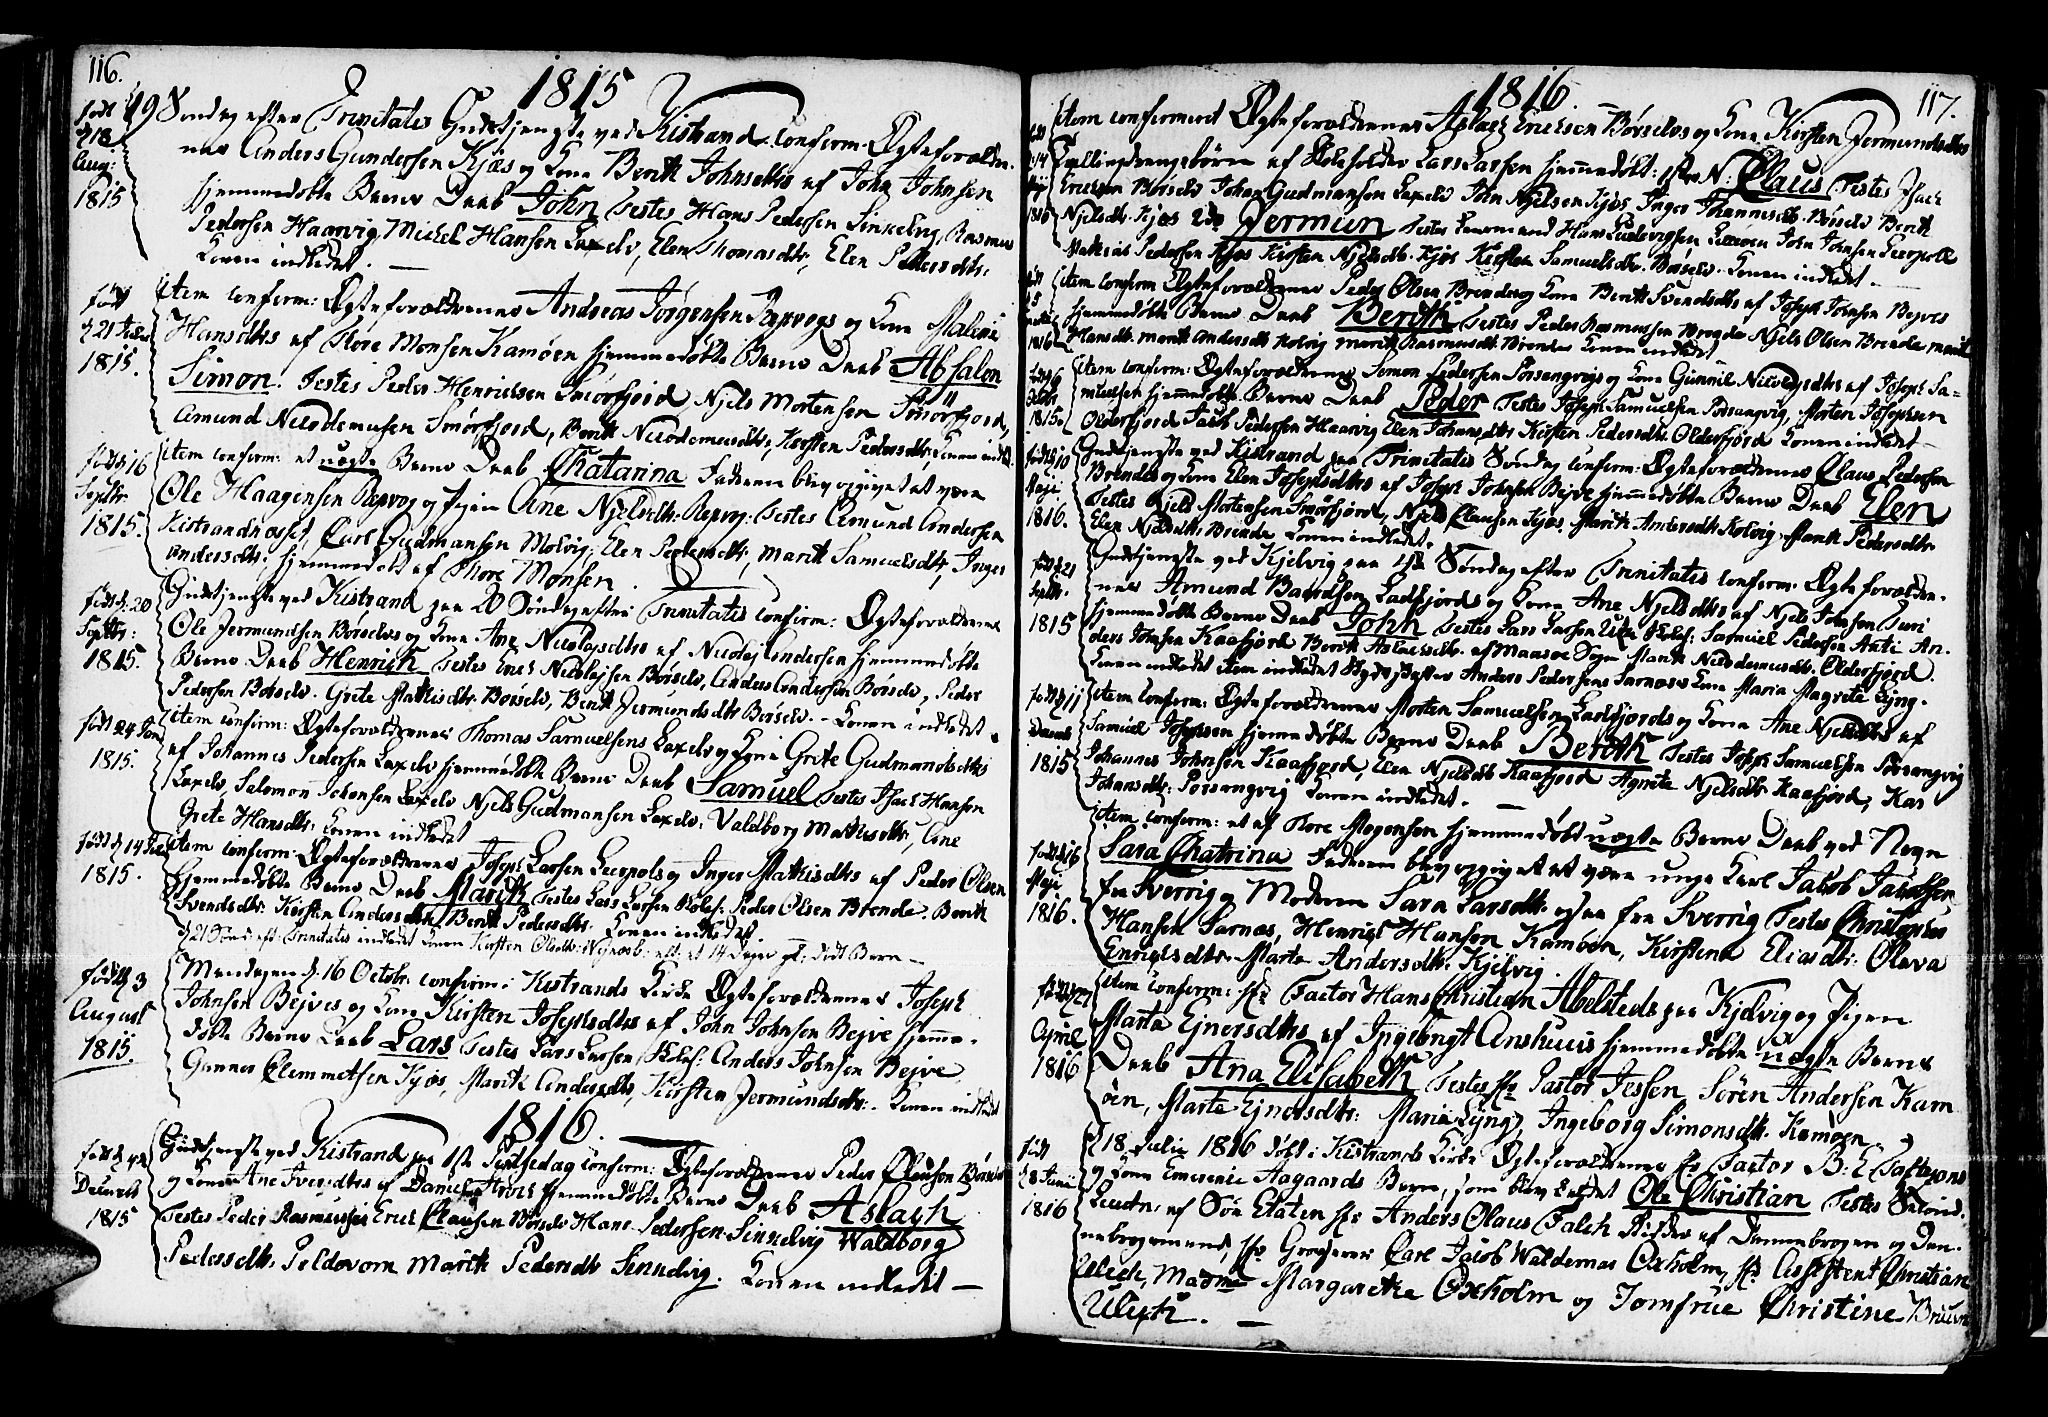 116.
1815
født d. 18 Aug: 1815
19 Søndag efter Trinitatis Gudstjeneste ved Kistrand. Conform. Ægteforældre-
nes Anders Gundersen Kjæs og Kone Berith Johnsdtrs af John Johnsen
hjemmedøbte Barns Daab John Testes Hans Pedersen Sinkelvig, Rasmus
Pedersen Haarvig, Michel Hansen Laxelv, Elen Thomasdtr, Elen Pedersdtr,
Konen indledet. —
født d. 21 1815.
item conform: Ægteforældrenes Andreas Jørgensen Repvogs og Kone Maleni
Hansdtrs af Thore Monsen Kamøen hjemmedøbte Barns Daab Absalon
Simon. Testes Peder Henricsen Smørfjord, Njels Mortensen Smörfjord,
Amund Nicodemusen Smørfjord, Berith Nicodemusdtr, Kirsten Pedersdtr, Konen indl.
født d. 16 Septbr. 1815.
item conform: et uægte Barns Daab Chatarina Faderen blev opgivet at være
Ole Haagensen Repvog og Pigen Ane Njelsdtr: Repvog: Testes Amund Andersen
Kistrandnæsset, Carl Gudmansen Molvig, Elen Pedersdtr, Marith Samuelsdtr, Inger
Andersdtr: hjemmedøbt af Thore Monsen.
født d. 20 Septbr: 1815.
Gudstjeneste ved Kistrand paa 20 Søndag efter Trinitatis conform: Ægteforældrenes
Ole Jermundsen Børselvs og Kone Ane Nicolajsdtrs af Nicolaj Andersen hjemmedøbte
Barns Daab Henrich Testes Erich Nicolajsen Børselv, Anders Andersen Børselv, Peder
Pedersen Børselv. Grete Mathisdtr Børselv, Berith Jermundsdtr Børselv. - Konen indledet.
født 24 Jan 1815.
item conform: Ægteforældrenes Thomas Samuelsens Laxelv og Kone Grete Gudmandsdtrs
af Johannes Pedersen Laxelv hjemmedøbte Barns Daab Samuel Testes Isach Hansen
Laxelv, Salomon Johansen Laxelv Njels Gudmansen Laxelv, Valdborg Mathisdtr, Ane
Grete Hansdtr. Konen indledet
født d. 14 1815.
item conform. Ægteforældrenes Joseph Larsen Leerpols og Inger Mathisdtrs af Peder Olsen
hjemmedøbte Barns Daab Marith Testes Lars Larsen Peder Olsen Brende. Berith
Svendsdtr. Kirsten Andersdtr Berith Pedersdtr. Konen indledet
d. 21 Sønd. eft. Trinitatis indledet Konen Kirsten Olsdtr: eft: et 14 Dage gl: dødt Barn —
født d. 3 August 1815.
Mandagen d. 16 Octobr. conform. i Kistrands Kirke Ægteforældrenes Joseph
Johnsen Bejves og Kone Kirsten Josephsdtrs af John Johnsen Bejve hjemme-
døbte Barns Daab Lars Testes Lars Larsen, Anders Johnsen Bejve,
Gunner Clemmetsen Kjæs, Marith Andersdtr, Kirsten Jermundsdtr. Konen indledet
1816.
født d. Decembr 1815
Gudstjeneste ved Kistrand paa 1ste Paaskedag conform: Ægteforældrenes Peder Clausen Børselvs
og Kone Ane Svendsdtrs af Daniel hjemmedøbte Barns Daab Aslach
Testes Peder Rasmussen Erich Clausen Børselv Hans Pedersen Sinnelvig Waldborg
Pedersdtr. Peldovom Marith Pedersdtr Sinnelvig. Konen indledet —
117.
1816.
født d. 14 Maj 1816
item conformeret Ægteforældrenes Aslach Erichsen Børselvs og Kone Kirsten Jermundsdtrs
Tvillingdrengebørn af Lars Larsen hjemmedøbt: N: Claus Testes Isach
Erichsen Børselv Johan Gudmansen Laxelv John Njelsen Kjæs Inger Johannesdtr. Børselv Berith
Njelsdtr. Kjæs 2do Jermun Testes Hans Ludevigsen John Johnsen Leerpoll
Mathias Pedersen Kjæs Kirsten Njelsdtr. Kjæs Kirsten Samuelsdtr. Børselv. Konen indledt. —
født 5 1816
item conform Ægteforældrenes Peder Olsen Brendes og Kone Berith Svendsdtrs af Joseph Johnsen Bejves
hjemmedøbte Barns Daab Berith Testes Peder Rasmussen Brende Njels Olsen Brende Marith
Hansdtr. Marith Andersdtr Kolvig Marith Rasmusdtr. Brendes Konen indledet
født 6 Octbr. 1815.
item conform: Ægteforældrenes Simon Pedersen Porsangvigs og Kone Gunnil Nicolajsdtrs af Joseph Sa-
muelsen hjemmedøbte Barns Daab Peder Testes Joseph Samuelsen Porsangvig, Morten Josephsen
Olderfjord Jacob Pedersen Haarvig Elen Johansdtr Kirsten Pedersdtr. Olderfjord Konen indledet —
født d. 10 Maji 1816.
Gudstjeneste ved Kistrand paa Trinitatis Søndag conform: Ægteforældrenes Claus Pedersen
Brendes og Kone Elen Josephsdtrs af Joseph Johnsen Bejve hjemmedøbte Barns Daab Elen
Testes Njels Mortensen Smørfjord, Njels Clausen Kjæs, Marith Andersdtr Kolvig, Marith Pedersdtr
Elen Njelsdtr. Brende Konen indledet.
født d. 21 Septbr. 1815
Gudstjeneste ved Kjelvig paa 1ste Søndag efter Trinitatis conform: Ægteforældre-
nes Amund Baardsen Ladfjords og Kone Ane Njelsdtrs af Njels Johnsen Juri
hjemmedøbte Barns Daab John Testes Lars Larsen Utzi Samuel Pedersen Anti An-
ders Johnsen Kaafjord Berith Aslaksdtr. af Maasøe Sogn Marith Nicodemusdtr. Olderfjord.
Konen indledet item indledet Anders Pedersens Sarnæs Kone Maria Magrete Lyng.
født d. 11 Decemb 1815
item conform: Ægteforældrenes Morten Samuelsen Ladfjords og Kone Ane Njelsdtrs af
Samuel Josepsen hjemmedøbte Barns Daab Berith Testes Joseph Samuelsen Porsangvig
Johannes Johnsen Kaafjord, Elen Njelsdtr Kaafjord Agnete Njelsdtr. Kaafjord, Kar
Johansdtr. Porsangvig Konen indledet. —
født d. 16 Maji 1816.
item conform: et af Thore Mogensen hjemmedøbt uægte Barns Daab ved Navn
Sara Chatrina Faderen blev opgivet at være unge Karl Jacob Jacobsen
fra Sverrig og Moderen Sara Larsdtr. ogsaa fra Sverrig Testes Christopher
Hansen Sarnæs, Henrich Hansen Kamøen, Kirstena Eliasdtr. Olava
Enrichsdtr. Marte Andersdtr. Kjelvig.
født d. 27 April 1816
item conform: Hr Factor Hans Christian Abelsteds paa Kjelvig og Pigen
Marta Ejnersdtrs af Ingebrigt Anshuus hjemmedøbte uægte Barns
Daab Ana Elisabeth Testes Hr Pastor Jessen, Søren Andersen Kam
øen, Marte Ejnersdtr. Maria Lyng, Ingeborg Simonsdtr. Kamøen.
født d. 8 Juni 1816
d. 18 Julii 1816 døbt i Kistrands Kirke Ægteforældrenes Hr Factor B. E
og Kone Emerenie Aagaards Barn, som blev kaldet Ole Christian Testes
af Søe Etaten Hr Anders Olaus Falch Ridder af Dannebrogen og Dan-
nebrogsmand, Hr Grosserer Carl Jacob Waldemar Oxholm, Hr Assistent Christian
Ulich, Madme Margarethe Oxholm og Jomfrue Christine Bruun
Ulich. —